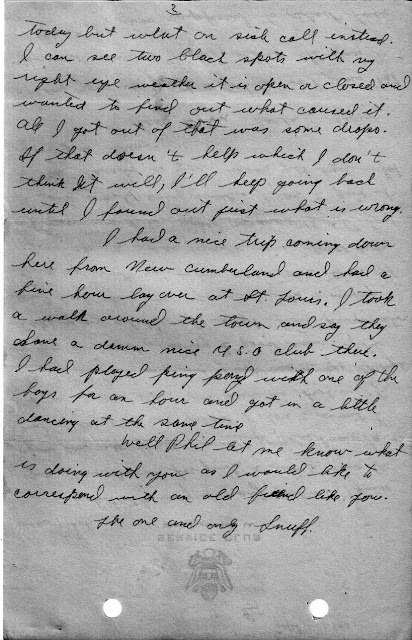 3
today but went on sick call instead.
I can see two black spots with my
right eye weather it is open or closed and
wanted to find out what caused it.
All I got out of that was some drops.
If that doesn't help which I don't
think It will, I'll keep going back
until I found out just what is wrong.
I had a nice trip coming down
here from New Cumberland and had a
five hour lay over at St Louis. I took
a walk around the town and say they
have a damn nice U.S.O club there.
I had played ping pong with one of the
boys for an hour and got in a little
dancing at the same time
Well Phil let me know what
is doing with you as I would like to
correspond with an old friend like you.
The one and only Snuff.
SERVICE CLUB